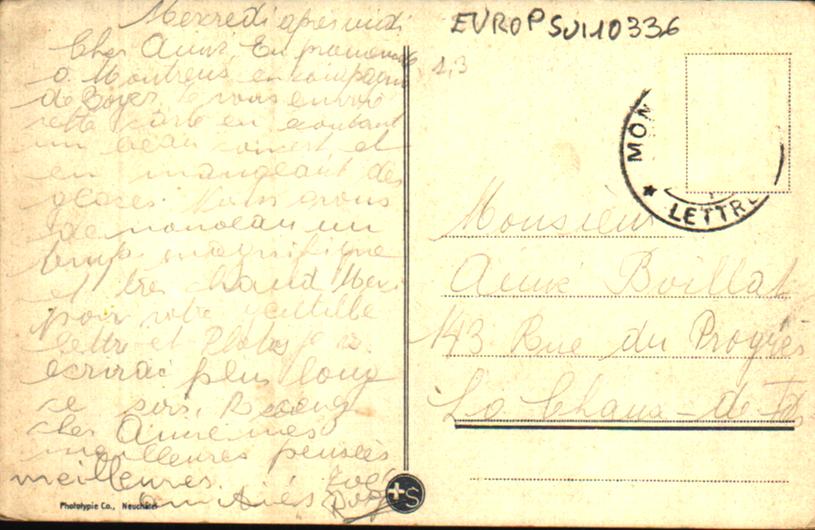 EUROPSUI10336
1,3
Mercredi après midi
Cher Aimé, En promenade
à Montreux en compagnie
de Boyer, je vous envoie
cette carte en écoutant
un beau concert et
en mangeant des
glaces. Nous avons
de nouveau un
temps magnifique
et très chaud. Merci
pour votre gentille
lettre et Photos je v.
écrirai plus long
ce soir.
cher Aimé mes
meilleures pensées
meilleures
amitiés
MON
LETTR
Monsieur
Aimé Boillat
143 Rue du Progrès
La Chaux-de-Fds
+S
Phototypie Co., Neuchâtel